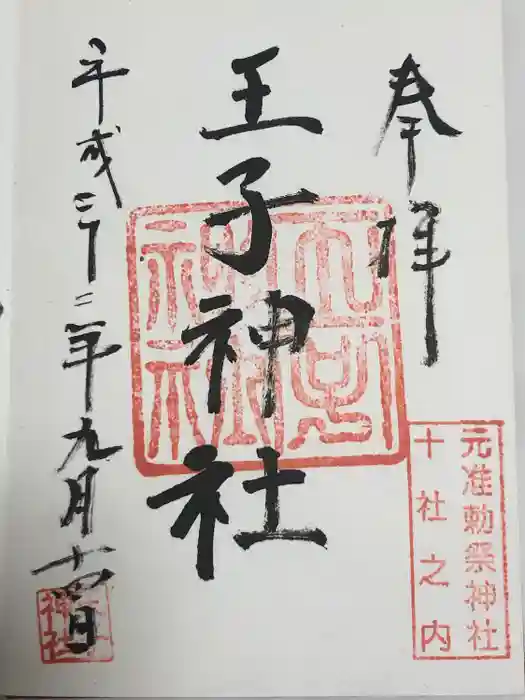 奉拝
王子神社
王子神社
元准勅祭神社
十社之内
平成二十二年九月十四日
神社